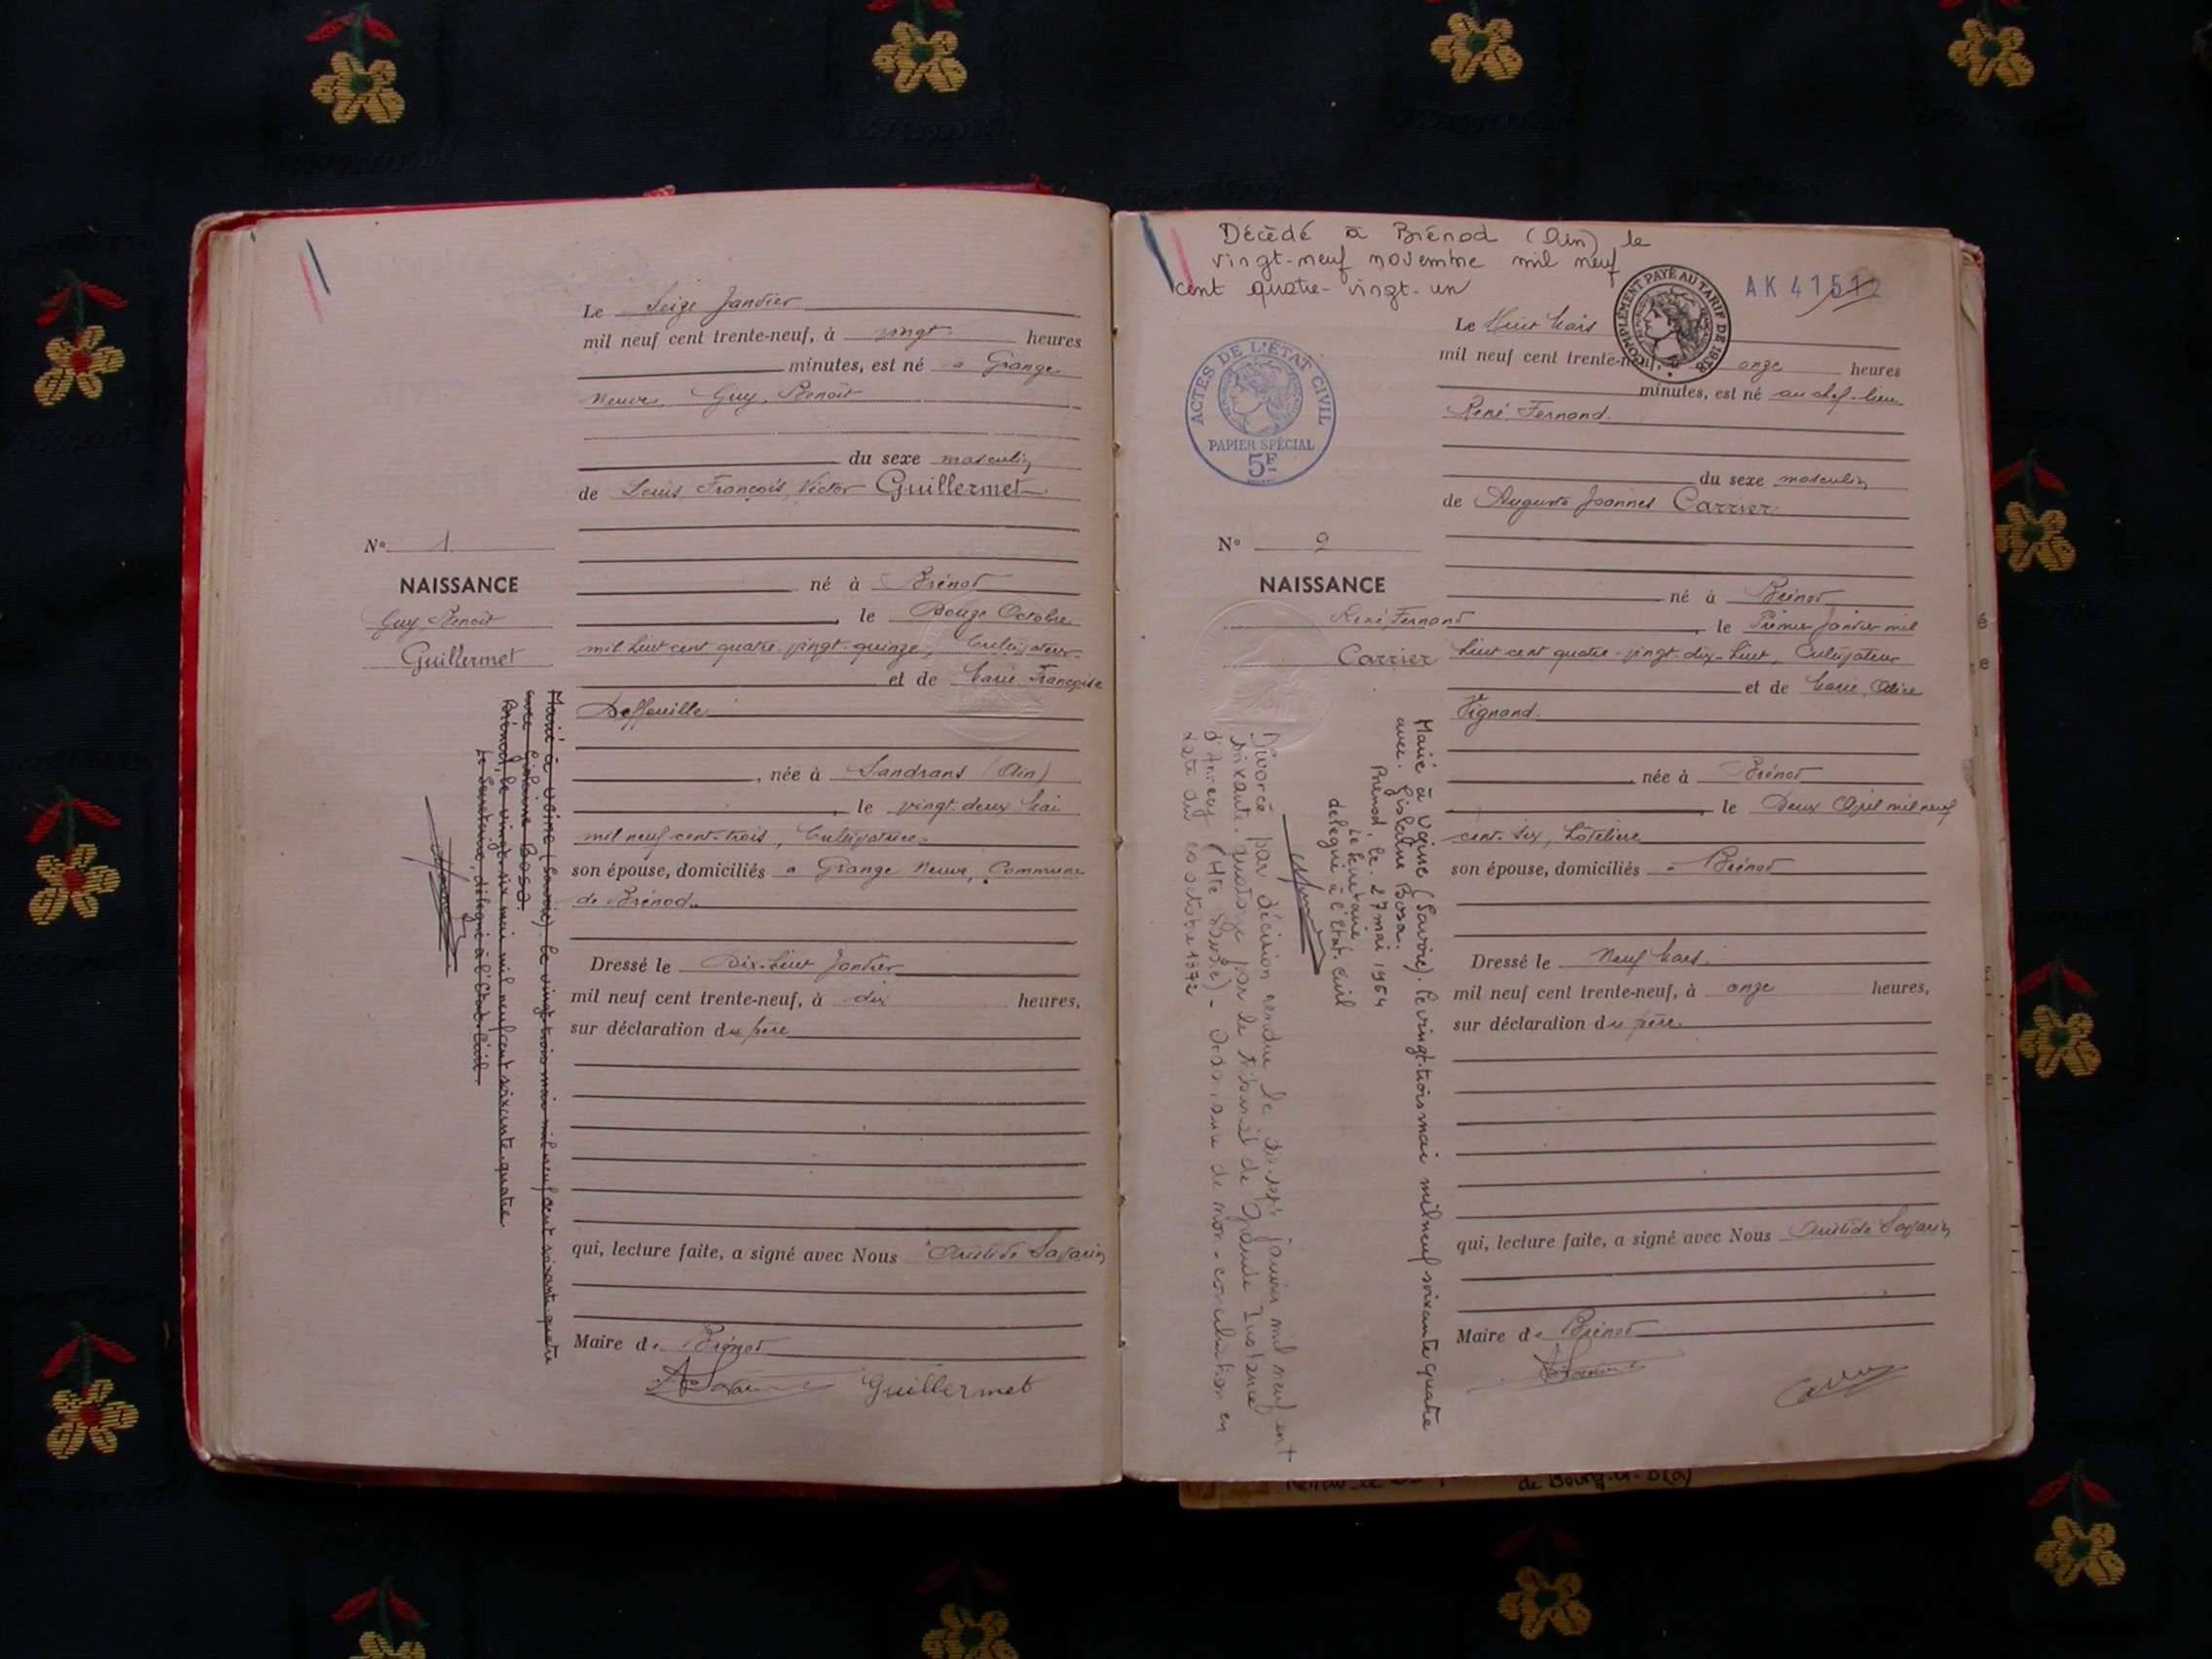 Le Seize Janvier
mil neuf cent trente-neuf, à vingt heures
minutes, est né à Grange
Neuve, Guy, Benoît
du sexe masculin
de Louis, François, Victor Guillermet
N° 1
NAISSANCE
Guy Benoît
Guillermet
né à Brénod
, le Douze Octobre
mil huit cent quatre-vingt-quinze, Cultivateur
et de Marie, Françoise
Deffeuille
, née à Sandrans (Ain)
, le vingt-deux Mai
mil neuf cent-trois, Cultivatrice
son épouse, domiciliés à Grange Neuve, Commune
de Brénod.
Dressé le Dix-huit Janvier
mil neuf cent trente-neuf, à dix heures,
sur déclaration du père
qui, lecture faite, a signé avec Nous Aristide Savarin
Maire de Brénod
Guillermet
Marié à Ugine (Savoie). le vingt-trois mai mil neuf cent soixante quatre
avec Gislaine Bosa.
Brénod, le vingt-six mai mil neuf cent soixante quatre
Le Secrétaire, délégué à l'Etat-Civil.
Décédé à Brénod (Ain) le
vingt-neuf novembre mil neuf
cent quatre-vingt-un
COMPLÉMENT PAYÉ AU TARIF DE 1938
AK 41512
ACTES DE L'ÉTAT CIVIL
PAPIER SPÉCIAL
5F
Le Huit Mars
mil neuf cent trente-neuf, à onze heures
minutes, est né au chef-lieu
René Fernand
du sexe masculin
de Auguste Joannès Carrier
N° 2
NAISSANCE
René, Fernand
Carrier
né à Brénod
, le Premier Janvier mil
huit cent quatre-vingt-dix-huit, Cultivateur
et de Marie, Alice
Vignand.
, née à Brénod
, le Deux Avril mil neuf
cent-six, hôtelière
son épouse, domiciliés à Brénod
Dressé le Neuf Mars.
mil neuf cent trente-neuf, à onze heures,
sur déclaration du père.
qui, lecture faite, a signé avec Nous Aristide Savarin
Maire de Brénod
Marié à Ugine (Savoie). le vingt-trois mai mil neuf soixante quatre
avec. Gislaine Bosa.
Brénod, le. 27 mai 1964
Le secrétaire,
délégué à l'Etat-Civil
Divorcé par décision rendue le dix-sept janvier mil neuf cent
soixante-quatorze par le Tribunal de Grande Instance
d'Annecy (Hte Savoie) - Ordonnance de non-conciliation en
date du octobre 1972
de Bourg-